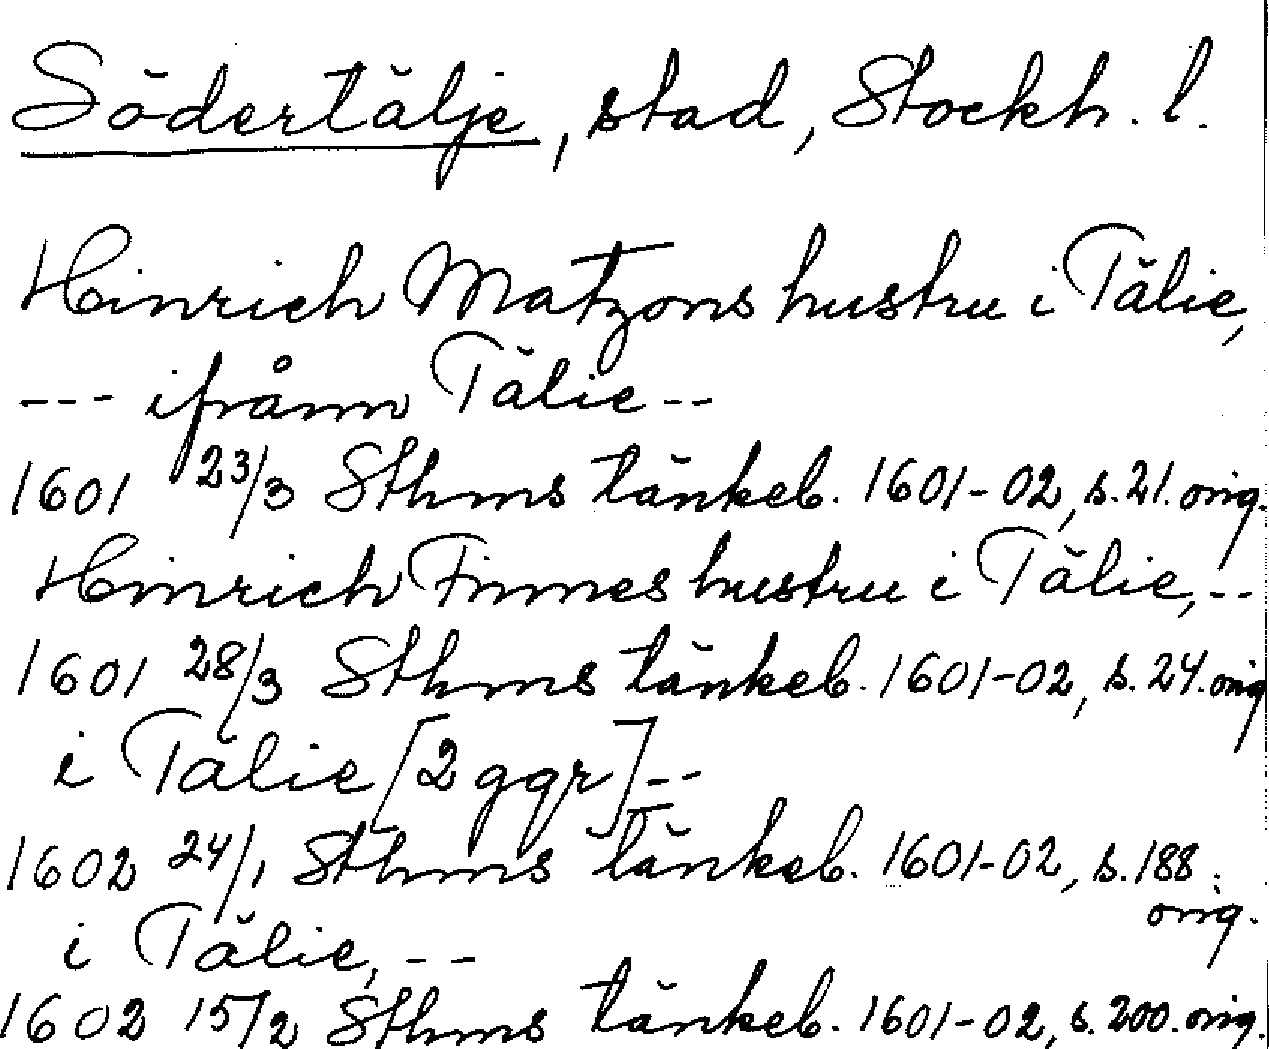 Södertälje, stad, Stockh. l.
Hinrich Matzons hustru i Tälie,
--- ifrånn Tälie --
1601 23/3 Sthms tänkeb. 1601-02, s. 21. orig.
Hinrich Finnes hustru i Tälie, --
1601 28/3 Sthms tänkeb. 1601-02, s. 24. orig
i Tälie [2 ggr] --
1602 24/1 Sthms tänkeb. 1601-02, s. 188. orig.
i Tälie, --
1602 15/2 Sthms tänkeb. 1601-02, s. 200. orig.